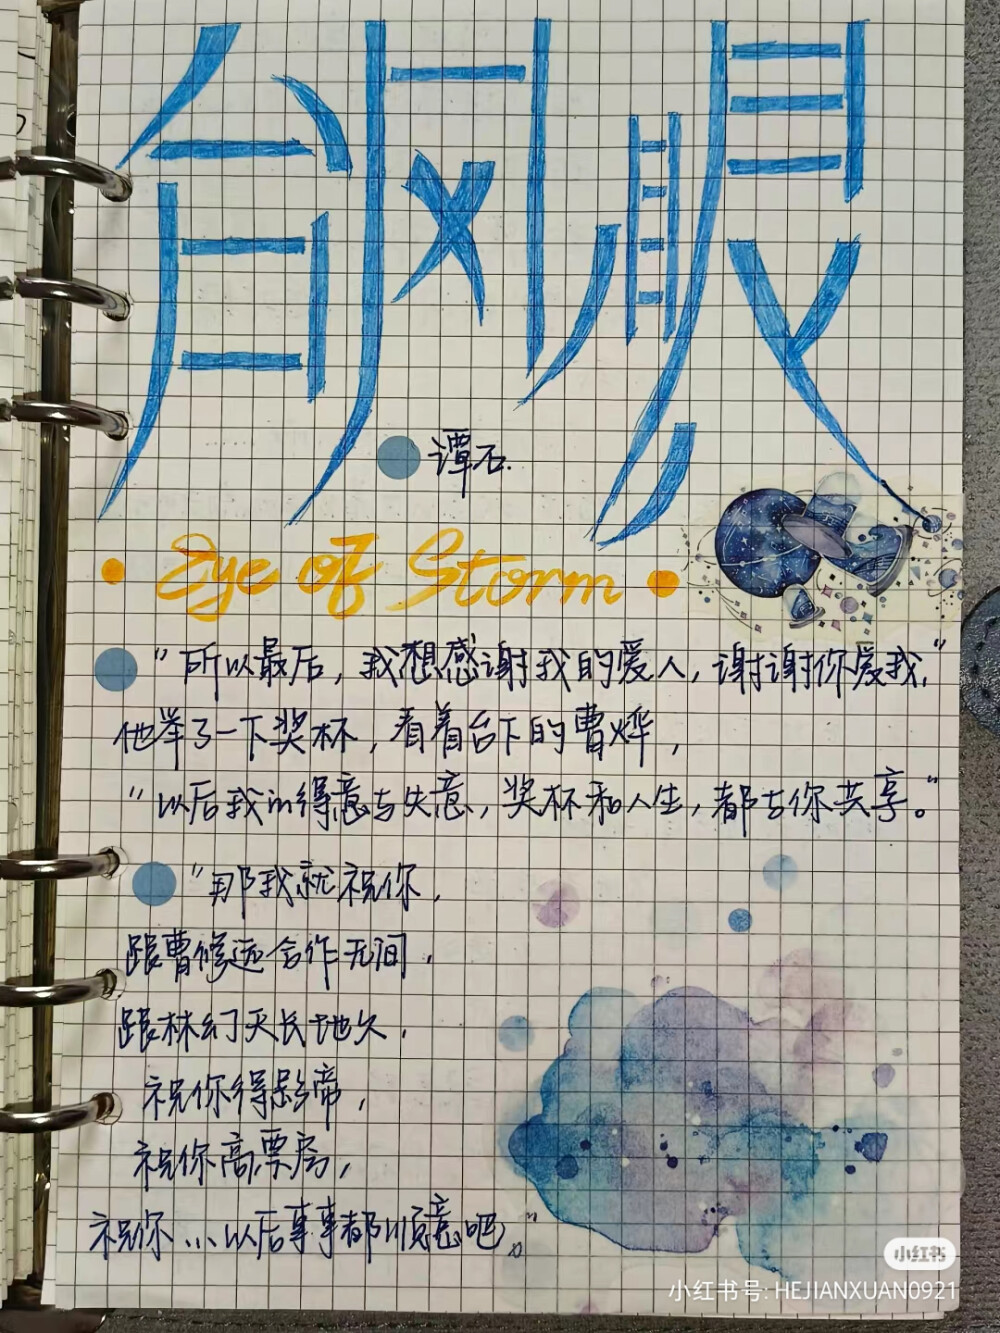 台风眼
谭石.
Eye of Storm
“所以最后，我想感谢我的爱人，谢谢你爱我，”
他举了一下奖杯，看着台下的曹烨，
“以后我的得意与失意，奖杯和人生，都与你共享。”
“那我就祝你，
跟曹修远合作无间，
跟林幻天长地久，
祝你得影帝，
祝你高票房，
祝你...以后事事都顺意吧。”
小红书
小红书号: HEJIANXUAN0921